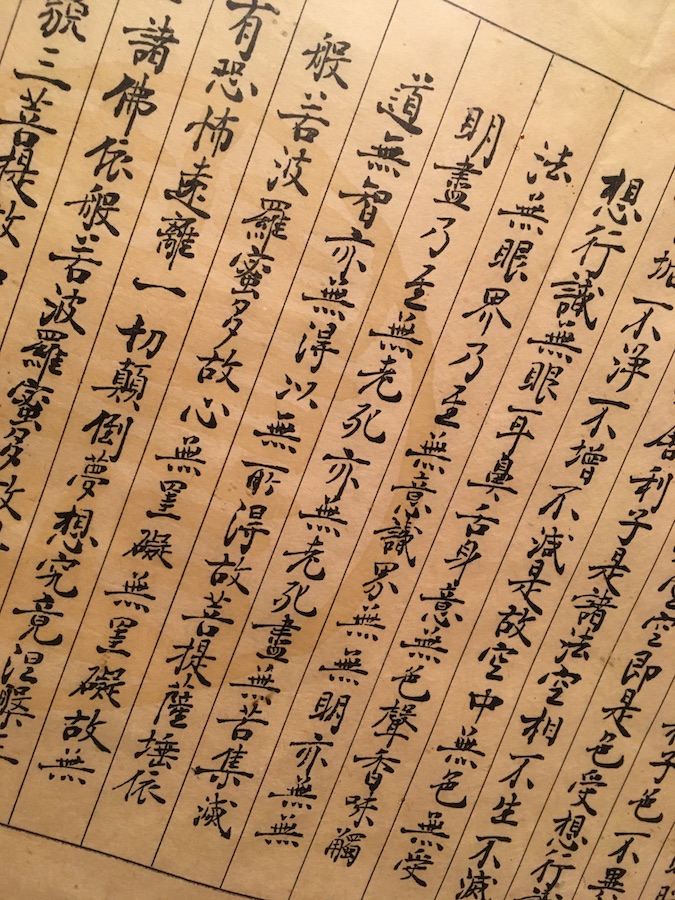 子色不異
空即是色受想行識
舍利子是諸法空相不生不滅
垢不淨不增不減是故空中無色無受
想行識無眼耳鼻舌身意無色聲香味觸
法無眼界乃至無意識界無無明亦無無
明盡乃至無老死亦無老死盡無苦集滅
道無智亦無得以無所得故菩提薩埵依
般若波羅蜜多故心無罣礙無罣礙故無
有恐怖遠離一切顛倒夢想究竟涅槃三
諸佛依般若波羅蜜多故
貌三菩提故